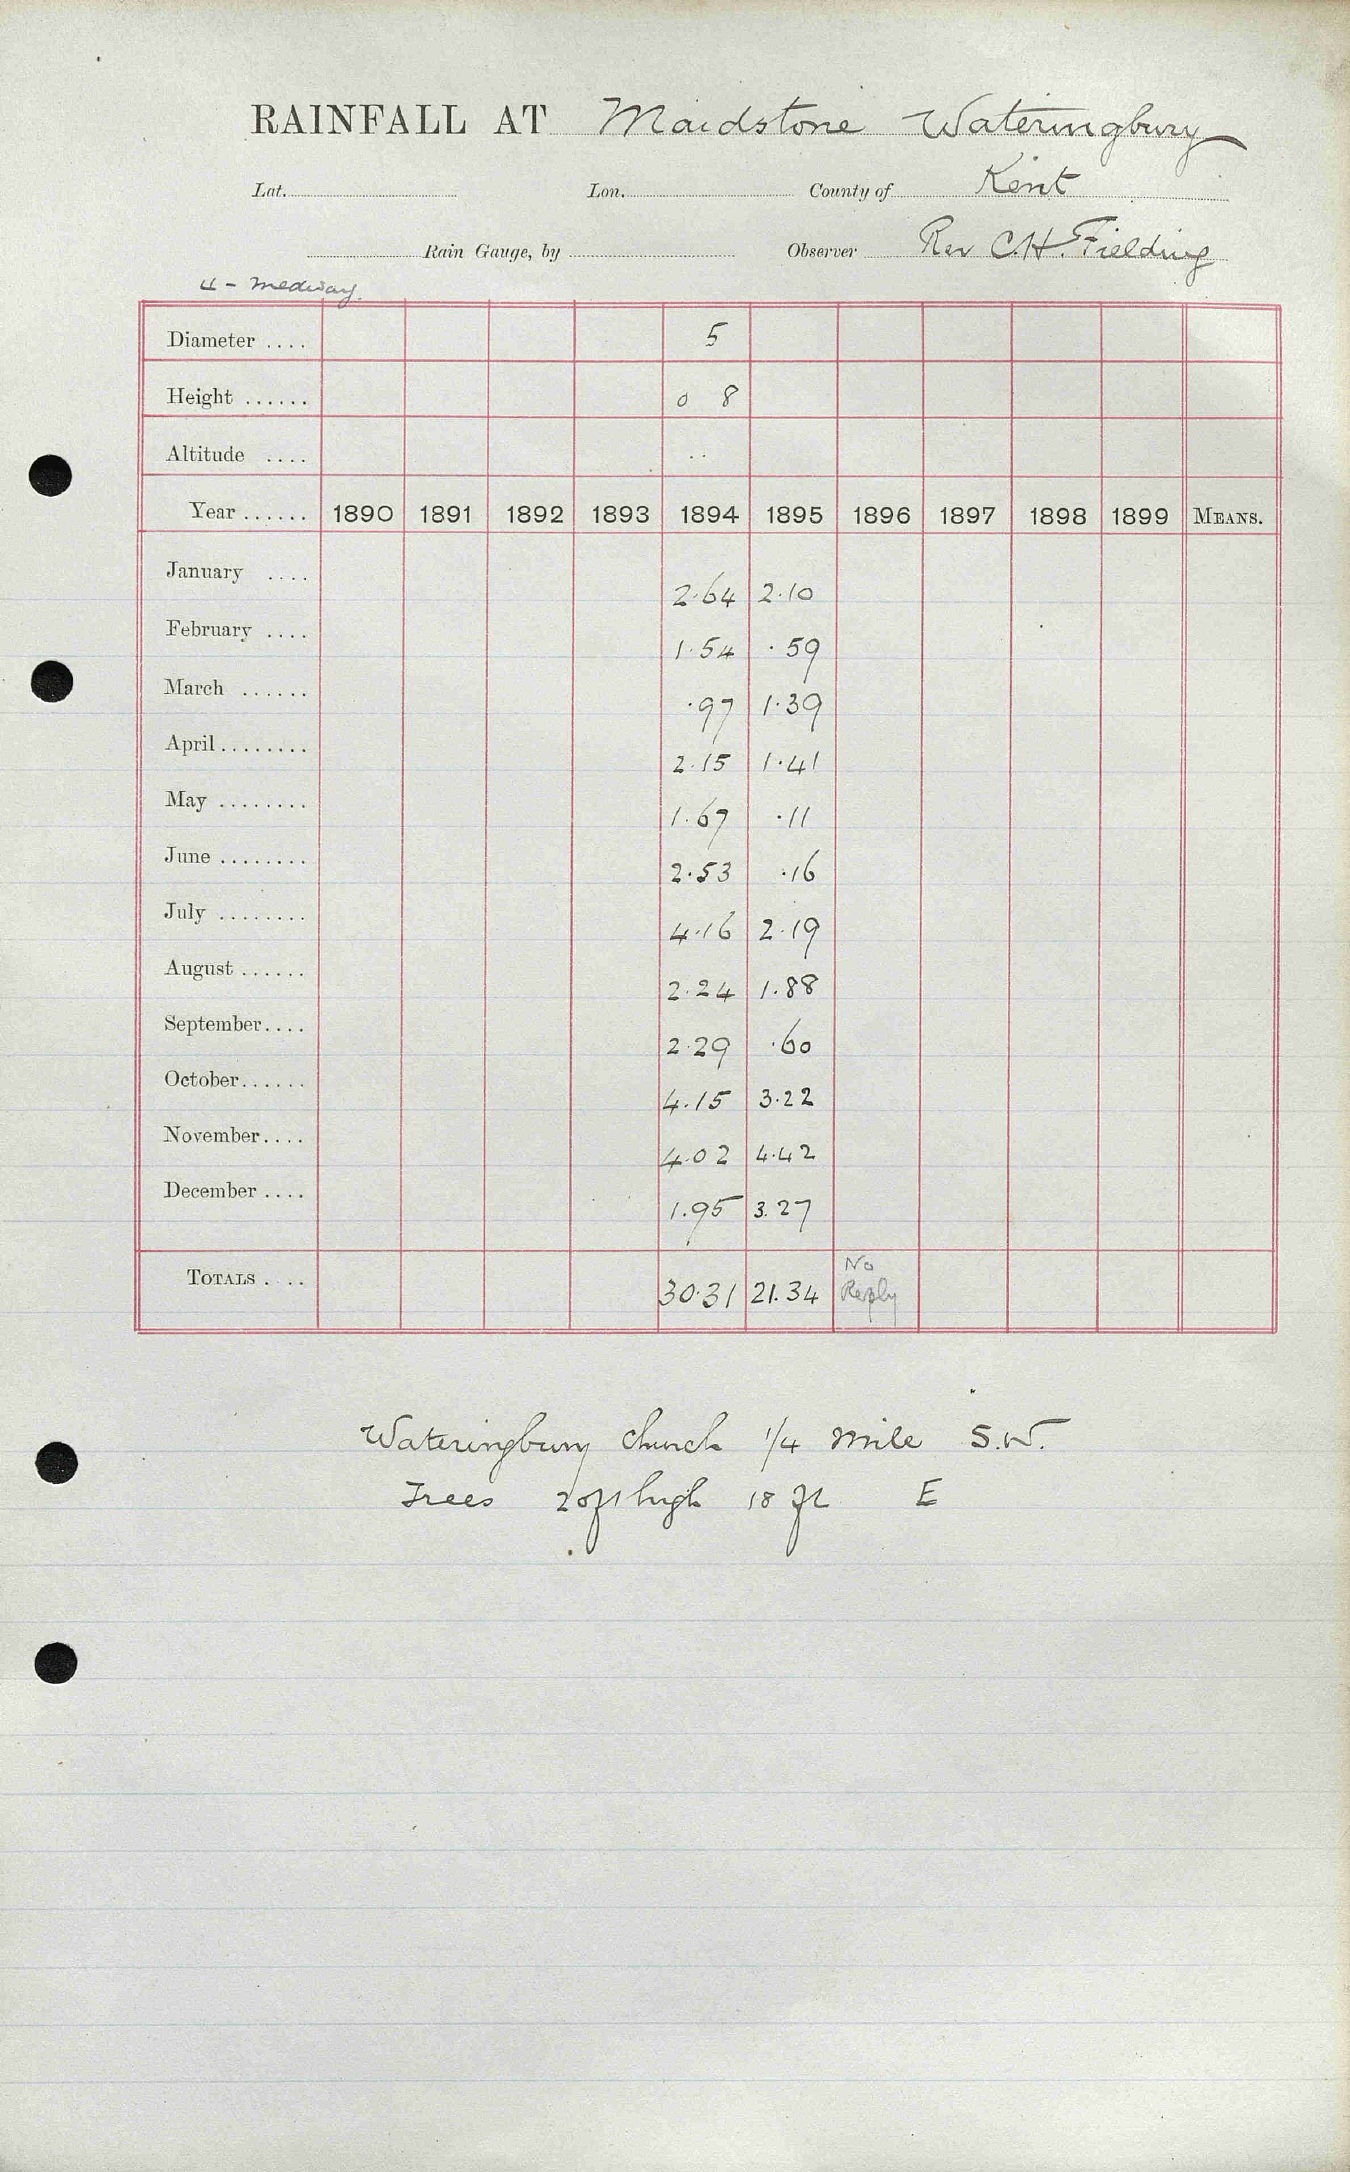 RAINFALL AT Maidstone Wateringbury
Lat. Lon. County of Kent
Rain Gauge, by Observer Rev C.H. Fielding
4 - Medway.
Diameter .... 5
Height ...... 0 8
Altitude .... ..
Year ...... 1890 1891 1892 1893 1894 1895 1896 1897 1898 1899 MEANS.
January .... 2.64 2.10
February .... 1.54 .59
March ...... .97 1.39
April ........ 2.15 1.41
May ........ 1.67 .11
June ........ 2.53 .16
July ........ 4.16 2.19
August ...... 2.24 1.88
September.... 2.29 .60
October...... 4.15 3.22
November.... 4.02 4.42
December .... 1.95 3.27
TOTALS . .. 30.31 21.34 No Reply
Wateringbury Church 1/4 mile S.W.
Trees 20ft high 18 ft E